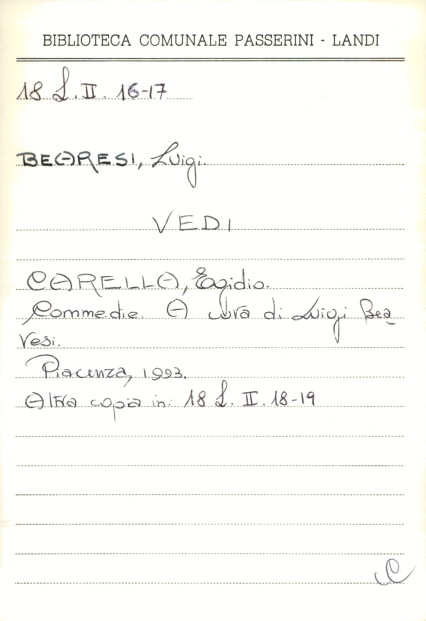 BIBLIOTECA COMUNALE PASSERINI - LANDI
18 L. II. 16-17
BEARESI, Luigi.
VEDI
CARELLA, Egidio.
Commedie. A cura di Luigi Bea
resi.
Piacenza, 1993.
Altra copia in: 18 L. II. 18-19